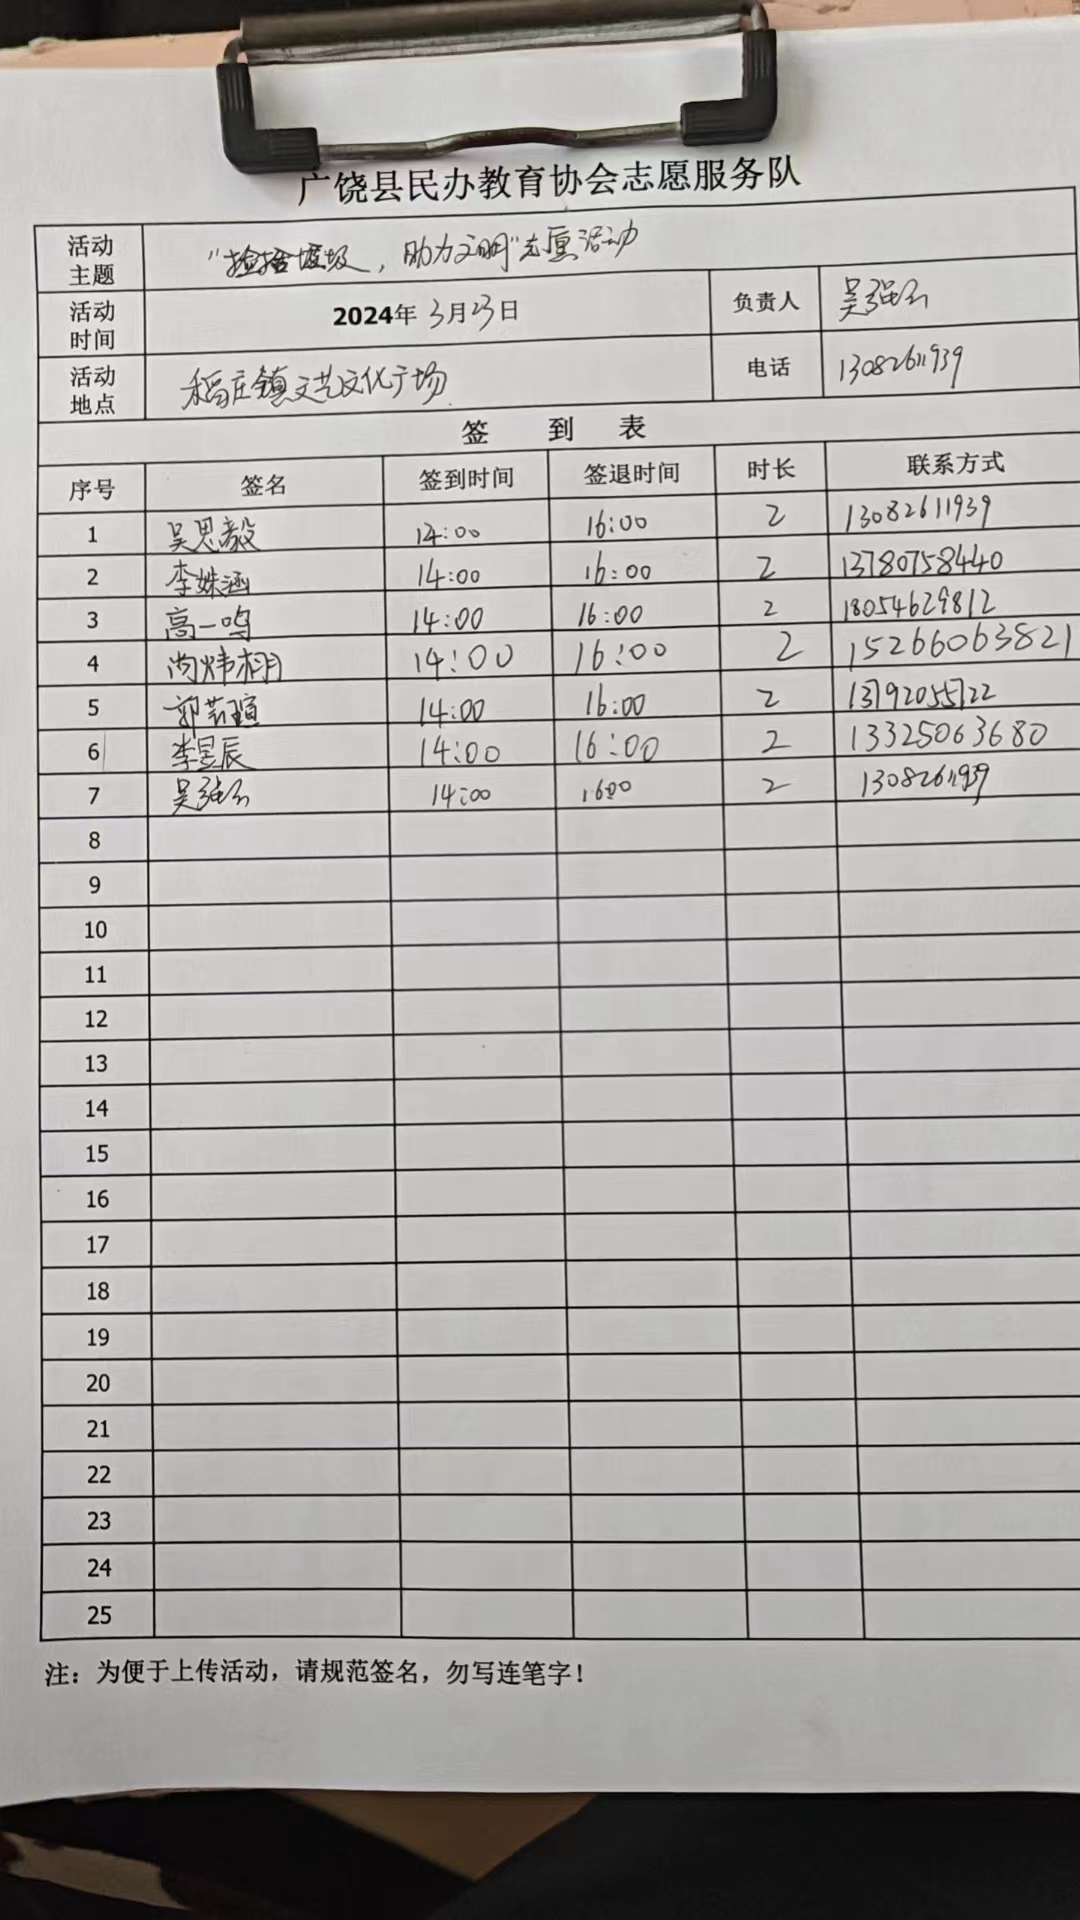 广饶县民办教育协会志愿服务队
活动主题 "捡拾垃圾，助力文明"志愿活动
活动时间 2024年3月23日 负责人 吴强
活动地点 稻庄镇文艺文化广场 电话 13082611939
签 到 表
序号 签名 签到时间 签退时间 时长 联系方式
1 吴思毅 14:00 16:00 2 13082611939
2 李姝涵 14:00 16:00 2 13780758440
3 高一鸣 14:00 16:00 2 18054629812
4 尚炜栩 14:00 16:00 2 15266063821
5 郭芸瑄 14:00 16:00 2 13792055722
6 李昱辰 14:00 16:00 2 13325063680
7 吴强 14:00 16:00 2 13082611939
8
9
10
11
12
13
14
15
16
17
18
19
20
21
22
23
24
25
注：为便于上传活动，请规范签名，勿写连笔字！